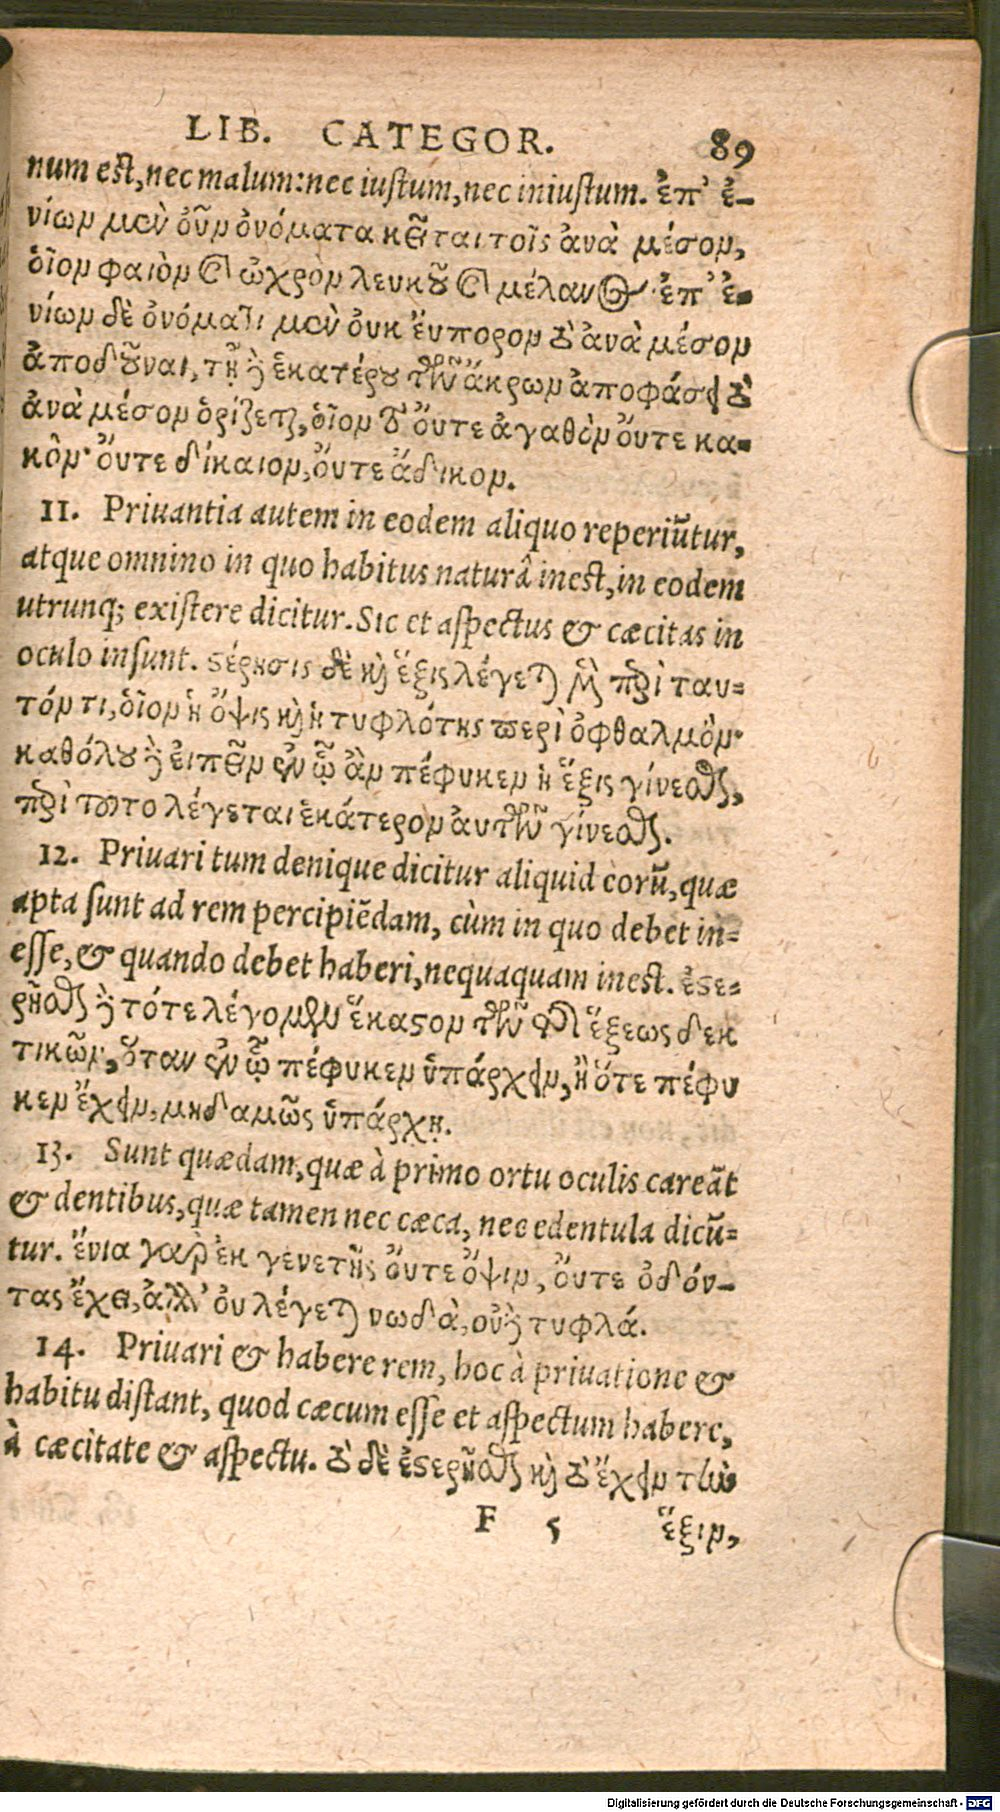 LIB. CATEGOR. 89
num est, nec malum: nec iustum, nec iniustum. ἐπ' ἐ-
νίων μὲν οὖν ὀνόματα κεῖται τοῖς ἀνὰ μέσον,
ὁῖον φαιὸν καὶ ὠχρὸν λευκοῦ καὶ μέλανος· ἐπ' ἐ-
νίων δὲ ὀνόματι μὲν ὀυκ ἔυπορον τὸ ἀνὰ μέσον
ἀποδοῦναι, τῇ δὲ ἑκατέρου τῶν ἄκρων ἀποφάσει τὸ
ἀνὰ μέσον ὁρίζεται, ὁῖον τὸ ὄυτε ἀγαθὸν ὄυτε κα-
κὸν· ὄυτε δίκαιον, ὄυτε ἄδικον.
11. Priuantia autem in eodem aliquo reperiũtur,
atque omnino in quo habitus naturâ inest, in eodem
utrunq; existere dicitur. Sic et aspectus & cæcitas in
oculo insunt. ϛέρησις δὲ καὶ ἕξις λέγεται μὲν περὶ ταυ-
τόν τι, ὁῖον ἡ ὄψις καὶ ἡ τυφλότης περὶ ὀφθαλμὸν·
καθόλου δὲ ἐιπεῖν ἐν ᾧ ἂν πέφυκεν ἡ ἕξις γίνεσθαι,
περὶ τοῦτο λέγεται ἑκάτερον ἀυτῶν γίνεσθαι.
12. Priuari tum denique dicitur aliquid eorũ, quæ
apta sunt ad rem percipiẽdam, cùm in quo debet in-
esse, & quando debet haberi, nequaquam inest. ἐϛε-
ρῆσθαι δὲ τότε λέγομεν ἕκαϛον τῶν τῆς ἕξεως δεκ
τικῶν, ὅταν ἐν ᾧ πέφυκεν ὑπάρχειν, ἢ ὅτε πέφυ
κεν ἔχειν, μηδαμῶς ὑπάρχῃ.
13. Sunt quædam, quæ à primo ortu oculis careãt
& dentibus, quæ tamen nec cæca, nec edentula dicũ-
tur. ἔνια γὰρ ἐκ γενετῆς ὄυτε ὄψιν, ὄυτε ὀδόν-
τας ἔχει, ἀλλ' ὀυ λέγεται νωδὰ, οὐδὲ τυφλά.
14. Priuari & habere rem, hoc à priuatione &
habitu distant, quod cæcum esse et aspectum habere,
à cæcitate & aspectu. τὸ δὲ ἐϛερῆσθαι καὶ τὸ ἔχειν τὴν
F 5 ἕξιν,
Digitalisierung gefördert durch die Deutsche Forschungsgemeinschaft - DFG